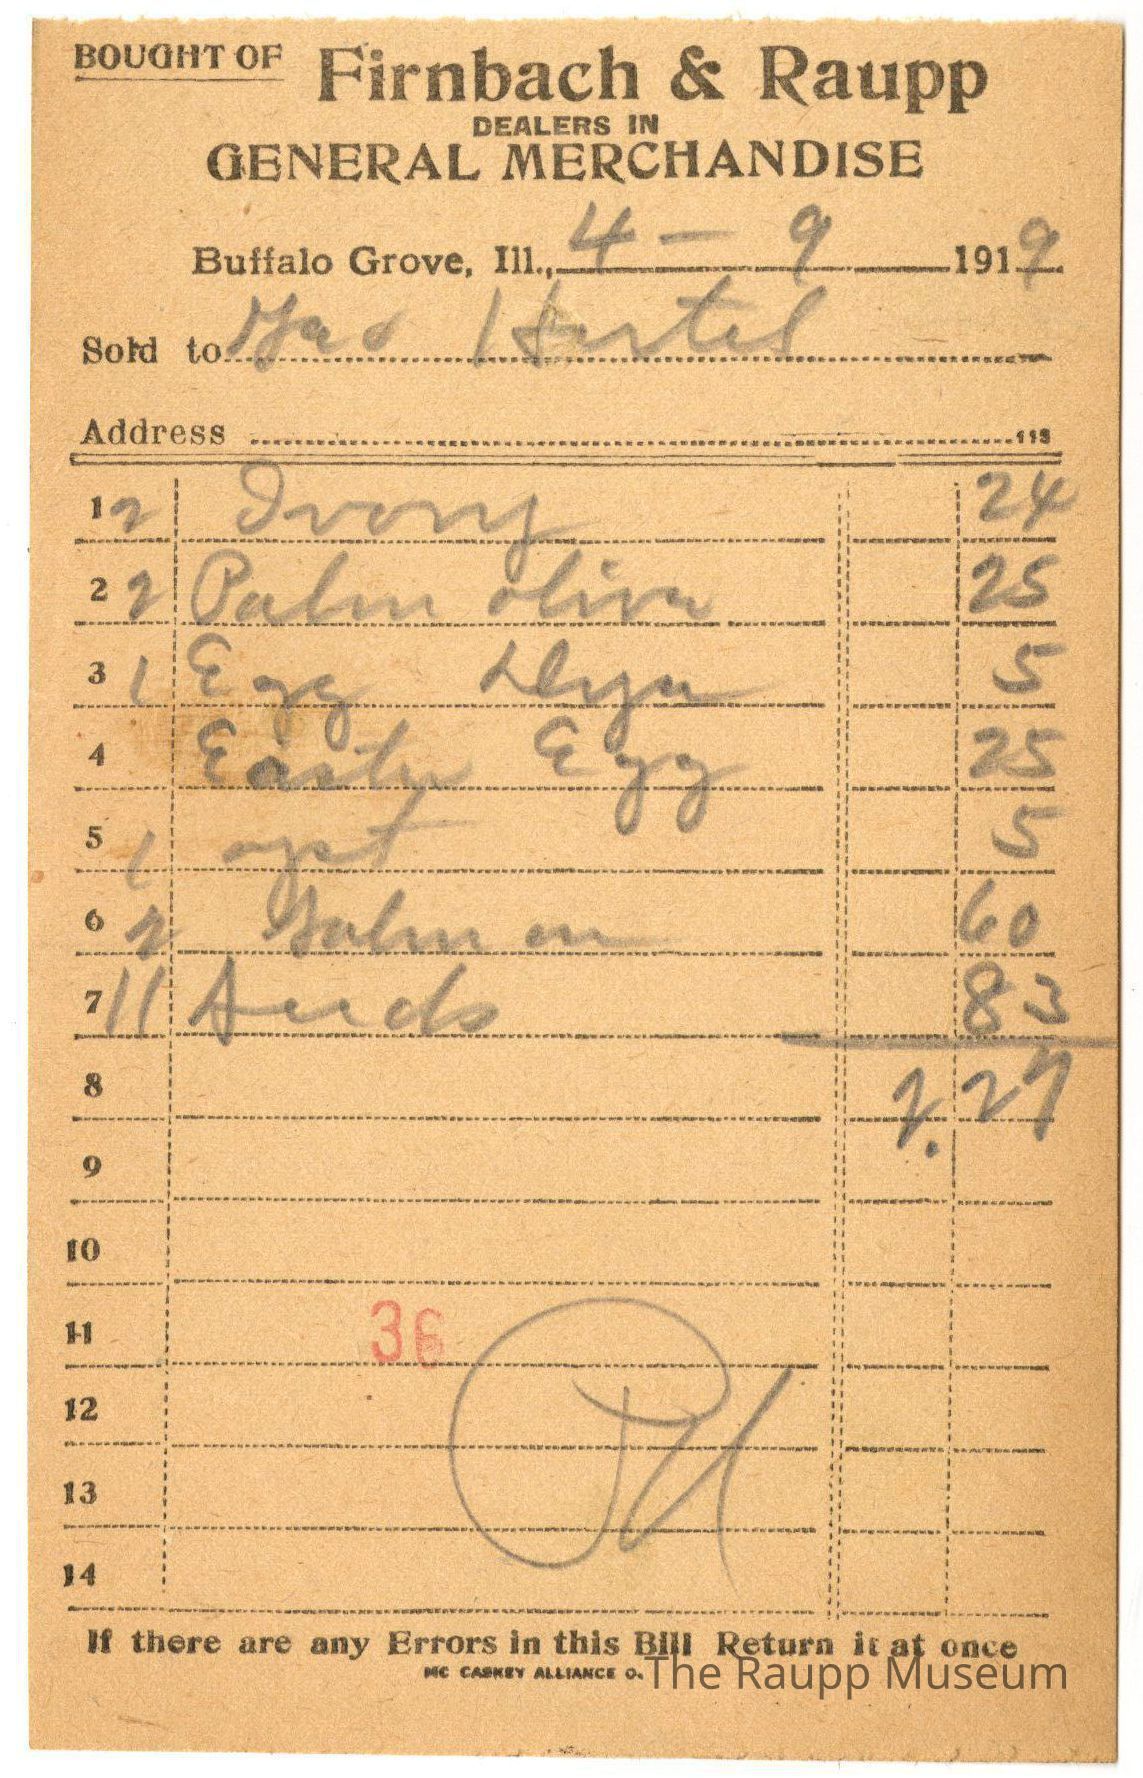 BOUGHT OF Firnbach & Raupp
DEALERS IN
GENERAL MERCHANDISE
Buffalo Grove, Ill., 4 - 9 1919
Sold to Geo Hertel
Address 113
1 2 Ivory 24
2 2 Palm oliva 25
3 1 Egg Dye 5
4 Easter Egg 25
5 1 5
6 2 Salmon 60
7 11 Seeds 83
8 2.27
9
10
11 36
12
13
14
If there are any Errors in this Bill Return it at once
MC CASKEY ALLIANCE O.
The Raupp Museum